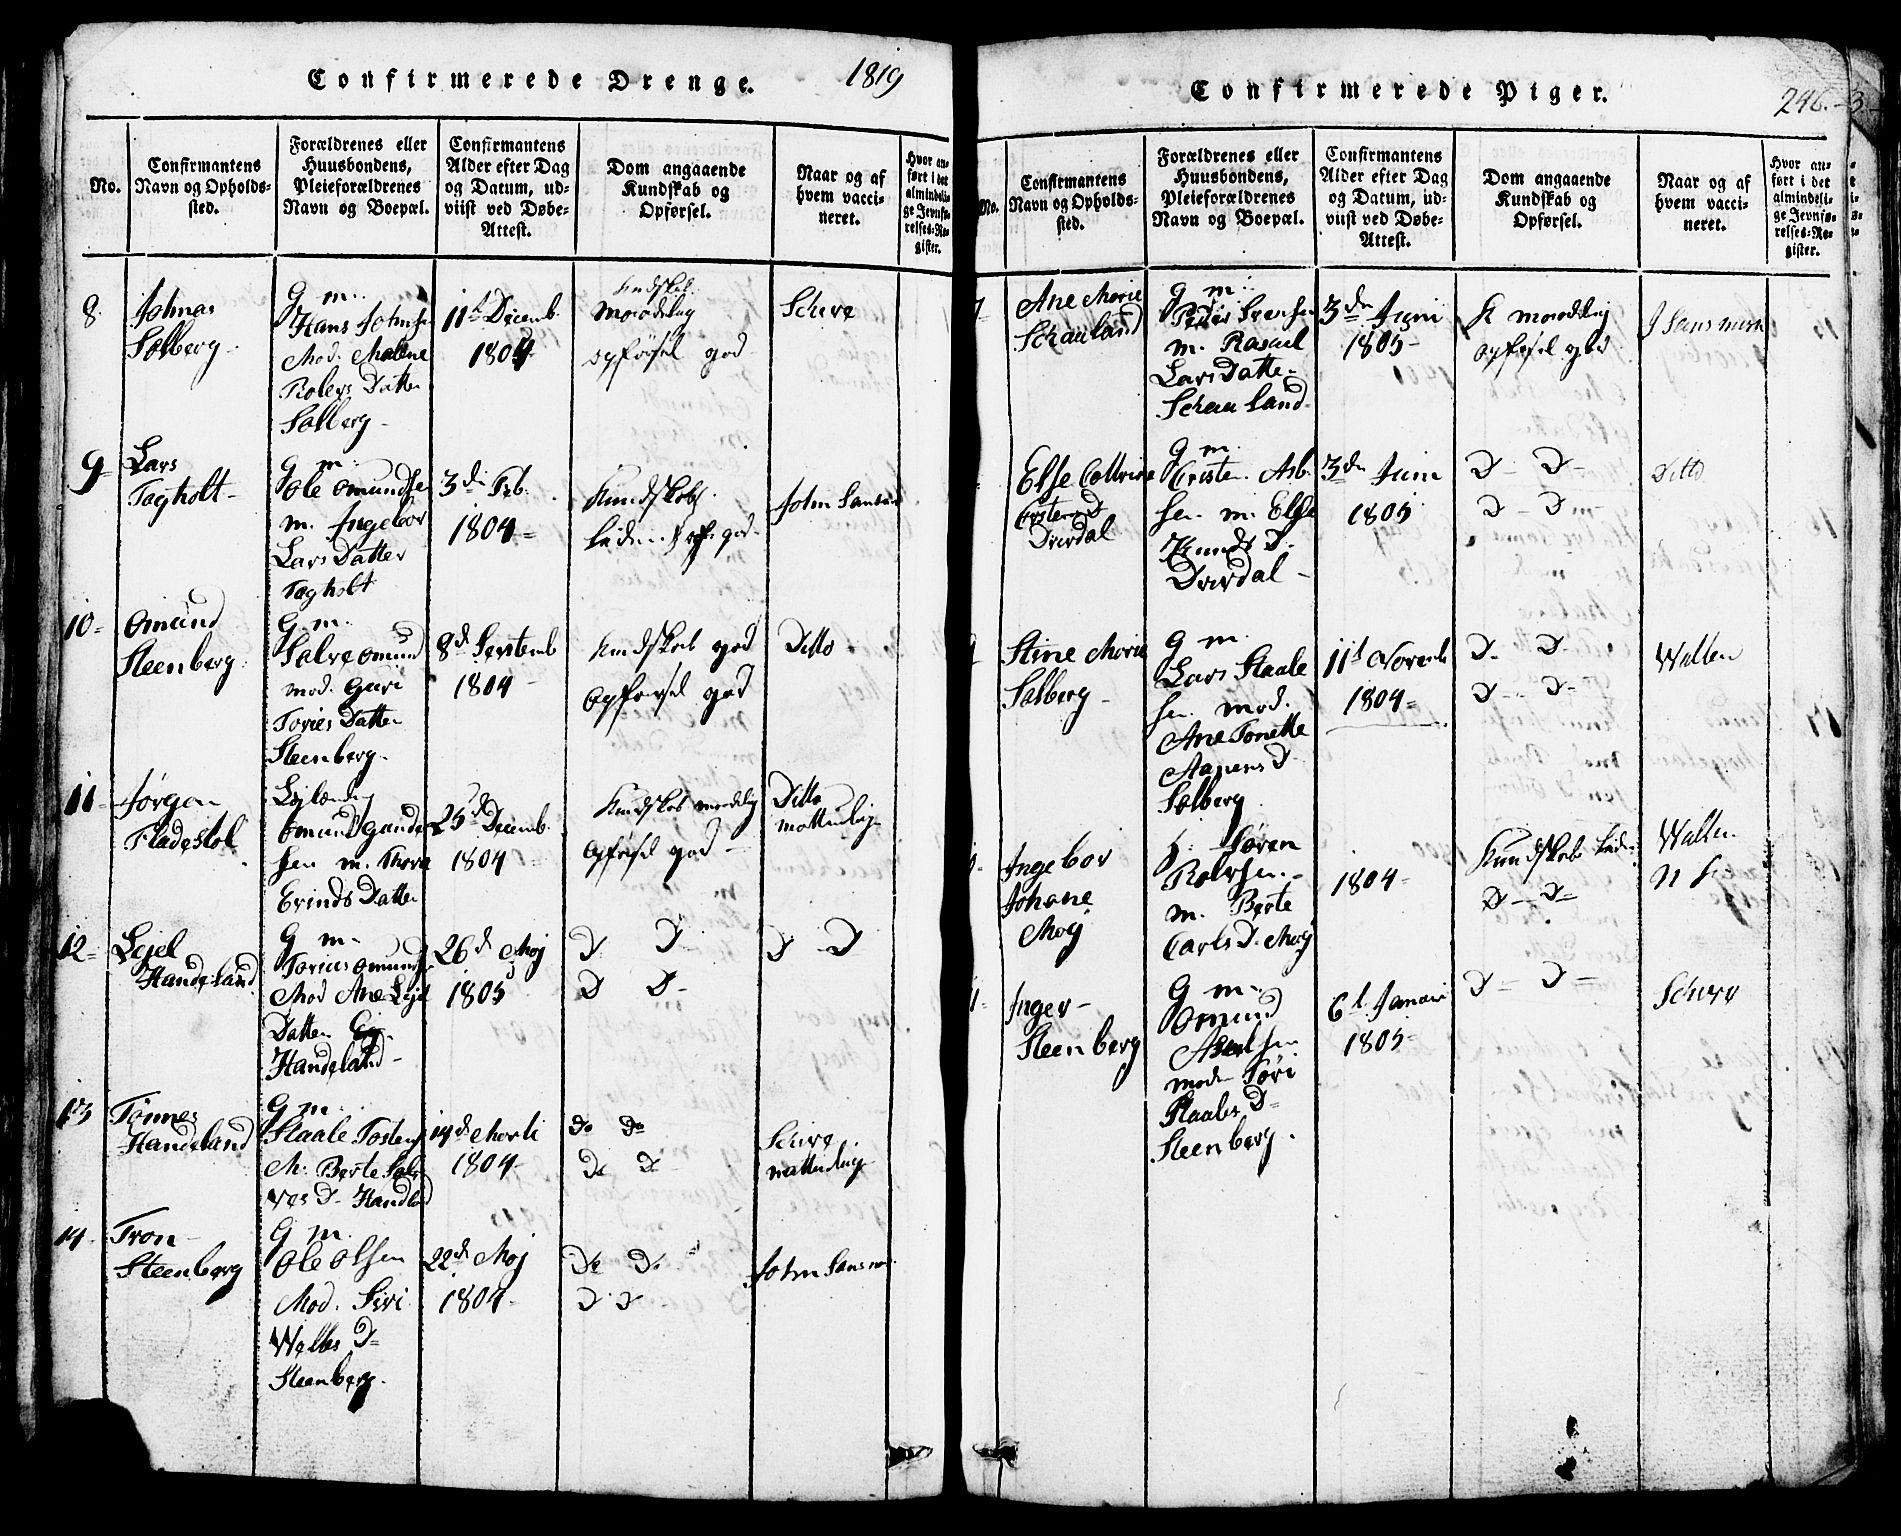 Confirmerede Drenge.
1819
No.
Confirmantens
Navn og Opholds-
sted.
Forældrenes eller
Huusbondens,
Pleieforældrenes
Navn og Boepæl.
Confirmantens
Alder efter Dag
og Datum, ud-
viist ved Døbe-
Attest.
Dom angaaende
Kundskab og
Opførsel.
Naar og af
hvem vacci-
neret.
Hvor an-
ført i det
almindeli-
ge Jevnfø-
relses-Re-
gister.
8.
Johnas
Solberg
G m.
Hans Johns
Mod. Malene
Datter
Solberg
11t Decemb.
1804
maadelig
opførsel god
Schive
9
Lars
Tagholt
G m.
Ole Omundse
m. Ingebor
Lars Datter
Tagholt
3de Feb.
1804
Kundskab
god
John
10
Omund
Steenberg
G. m.
Salve Omund
mod. Guri
Tories Datter
Steenberg
8d Septemb
1804
Kundskab god
Opførsel god
Ditto
11
Jørgen
Fladestol
Leilænding
Omund Gunder
sen m. Thore
Erinds Datter
25d Decemb.
1804
Kundskab maadelig
Opførsel god
Ditto
12
Lejel
Handeland
G m.
Tories Omunds
Mod Ane Lejel
Datter
Handeland
26d Maj
1805
D D
D D
D D
13
Tønnes
Handeland
G m.
Staale Tostens
M. Berte Sal
ves D. Handland
14d Marti
1804
Do Do
Do D
Schive
14
Tron
Steenberg
G m.
Ole Olsen
Mod. Siri
D
Steenberg.
22d Maj
1804
Do Do
D D
John
Confirmerede Piger.
246.
No.
Confirmantens
Navn og Opholds-
sted.
Forældrenes eller
Huusbondens,
Pleieforældrenes
Navn og Boepæl.
Confirmantens
Alder efter Dag
og Datum, ud-
viist ved Døbe-
Attest.
Dom angaaende
Kundskab og
Opførsel.
Naar og af
hvem vacci-
neret.
Hvor an-
ført i det
almindeli-
ge Jevnfø-
relses-Re-
gister.
7
Ane Marie
Schauland
G m.
Peder Svensen
m. Rasael
Lars Datter
Schauland
3de Juni
1805
K maadelig
opførsel god
J
Else Cathrine
D
Drivdal
G m.
Cristen Asb
sen m. Else
Knuds D.
Drivdal
3de Juni
1805
D D
D D
Ditto
9
Stine Marie
Solberg
G m.
Lars Staale
sen mod.
Ane Tonette
D
Solberg
11t Novemb
1804
D. D.
D D
Wallen
Ingebor
Johane
Moij
Søren
m. Berte
Carls D. Moij
1804
Kundskab
D D
Wallen
Inger
Steenberg
G m.
Omund
Axelsen
mod Tøri
Staales D
Steenberg.
6t Januari
1805
D D
Schive